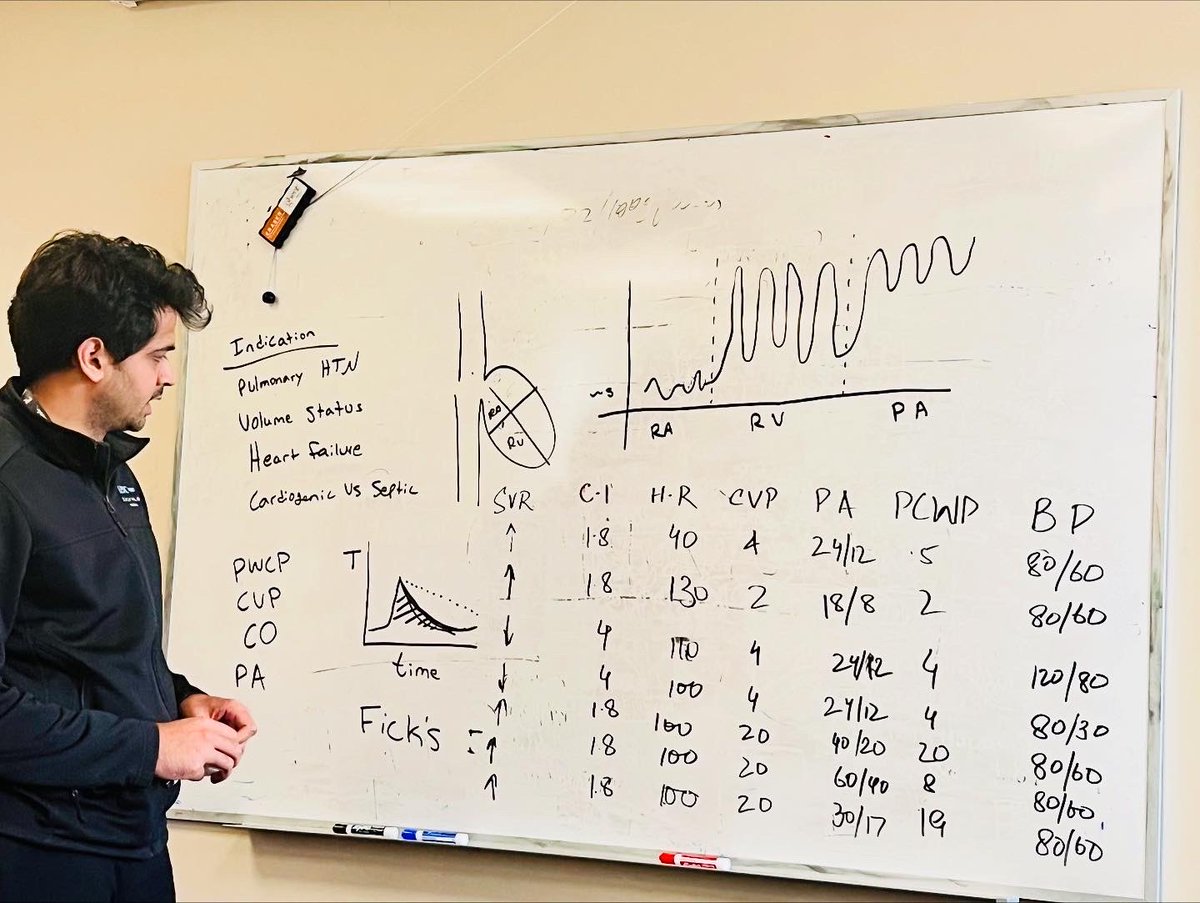 Indication
Pulmonary HTN
Volume Status
Heart Failure
Cardiogenic Vs Septic
PWCP
CVP
CO
PA
T
time
Fick's :
RA
RV
RA RV PA
SVR C.I H.R CVP PA PCWP BP
↑ 1.8 40 4 24/12 5 80/60
↑ 1.8 130 2 18/8 2 80/60
↓ 4 110 4 24/12 4 120/80
↓ 4 100 4 24/12 4 80/30
↑ 1.8 100 20 40/20 20 80/60
↑ 1.8 100 20 60/40 8 80/60
↑ 1.8 100 20 30/17 19 80/60